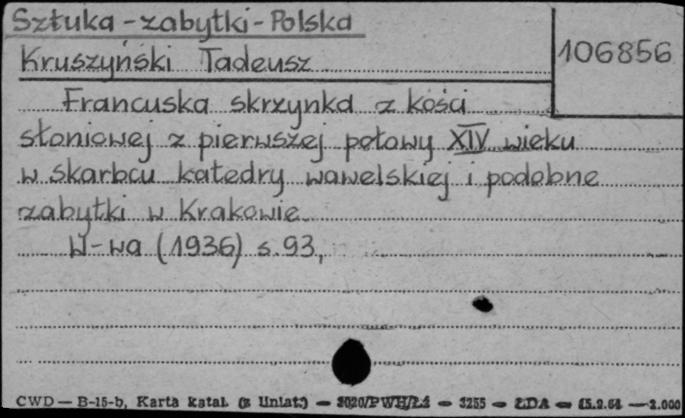 Sztuka-zabytki-Polska
106856
Kruszyński Tadeusz
Francuska skrzynka z kości
słoniowej z pierwszej połowy XIV wieku
w skarbcu katedry wawelskiej i podobne
zabytki w Krakowie.
W-wa (1936) s.93,
CWD — B-15-b, Karta katal. (z Uniat.) — 3020/PWH/Łź — 3255 — ŁDA — 15.9.64 — 2.000